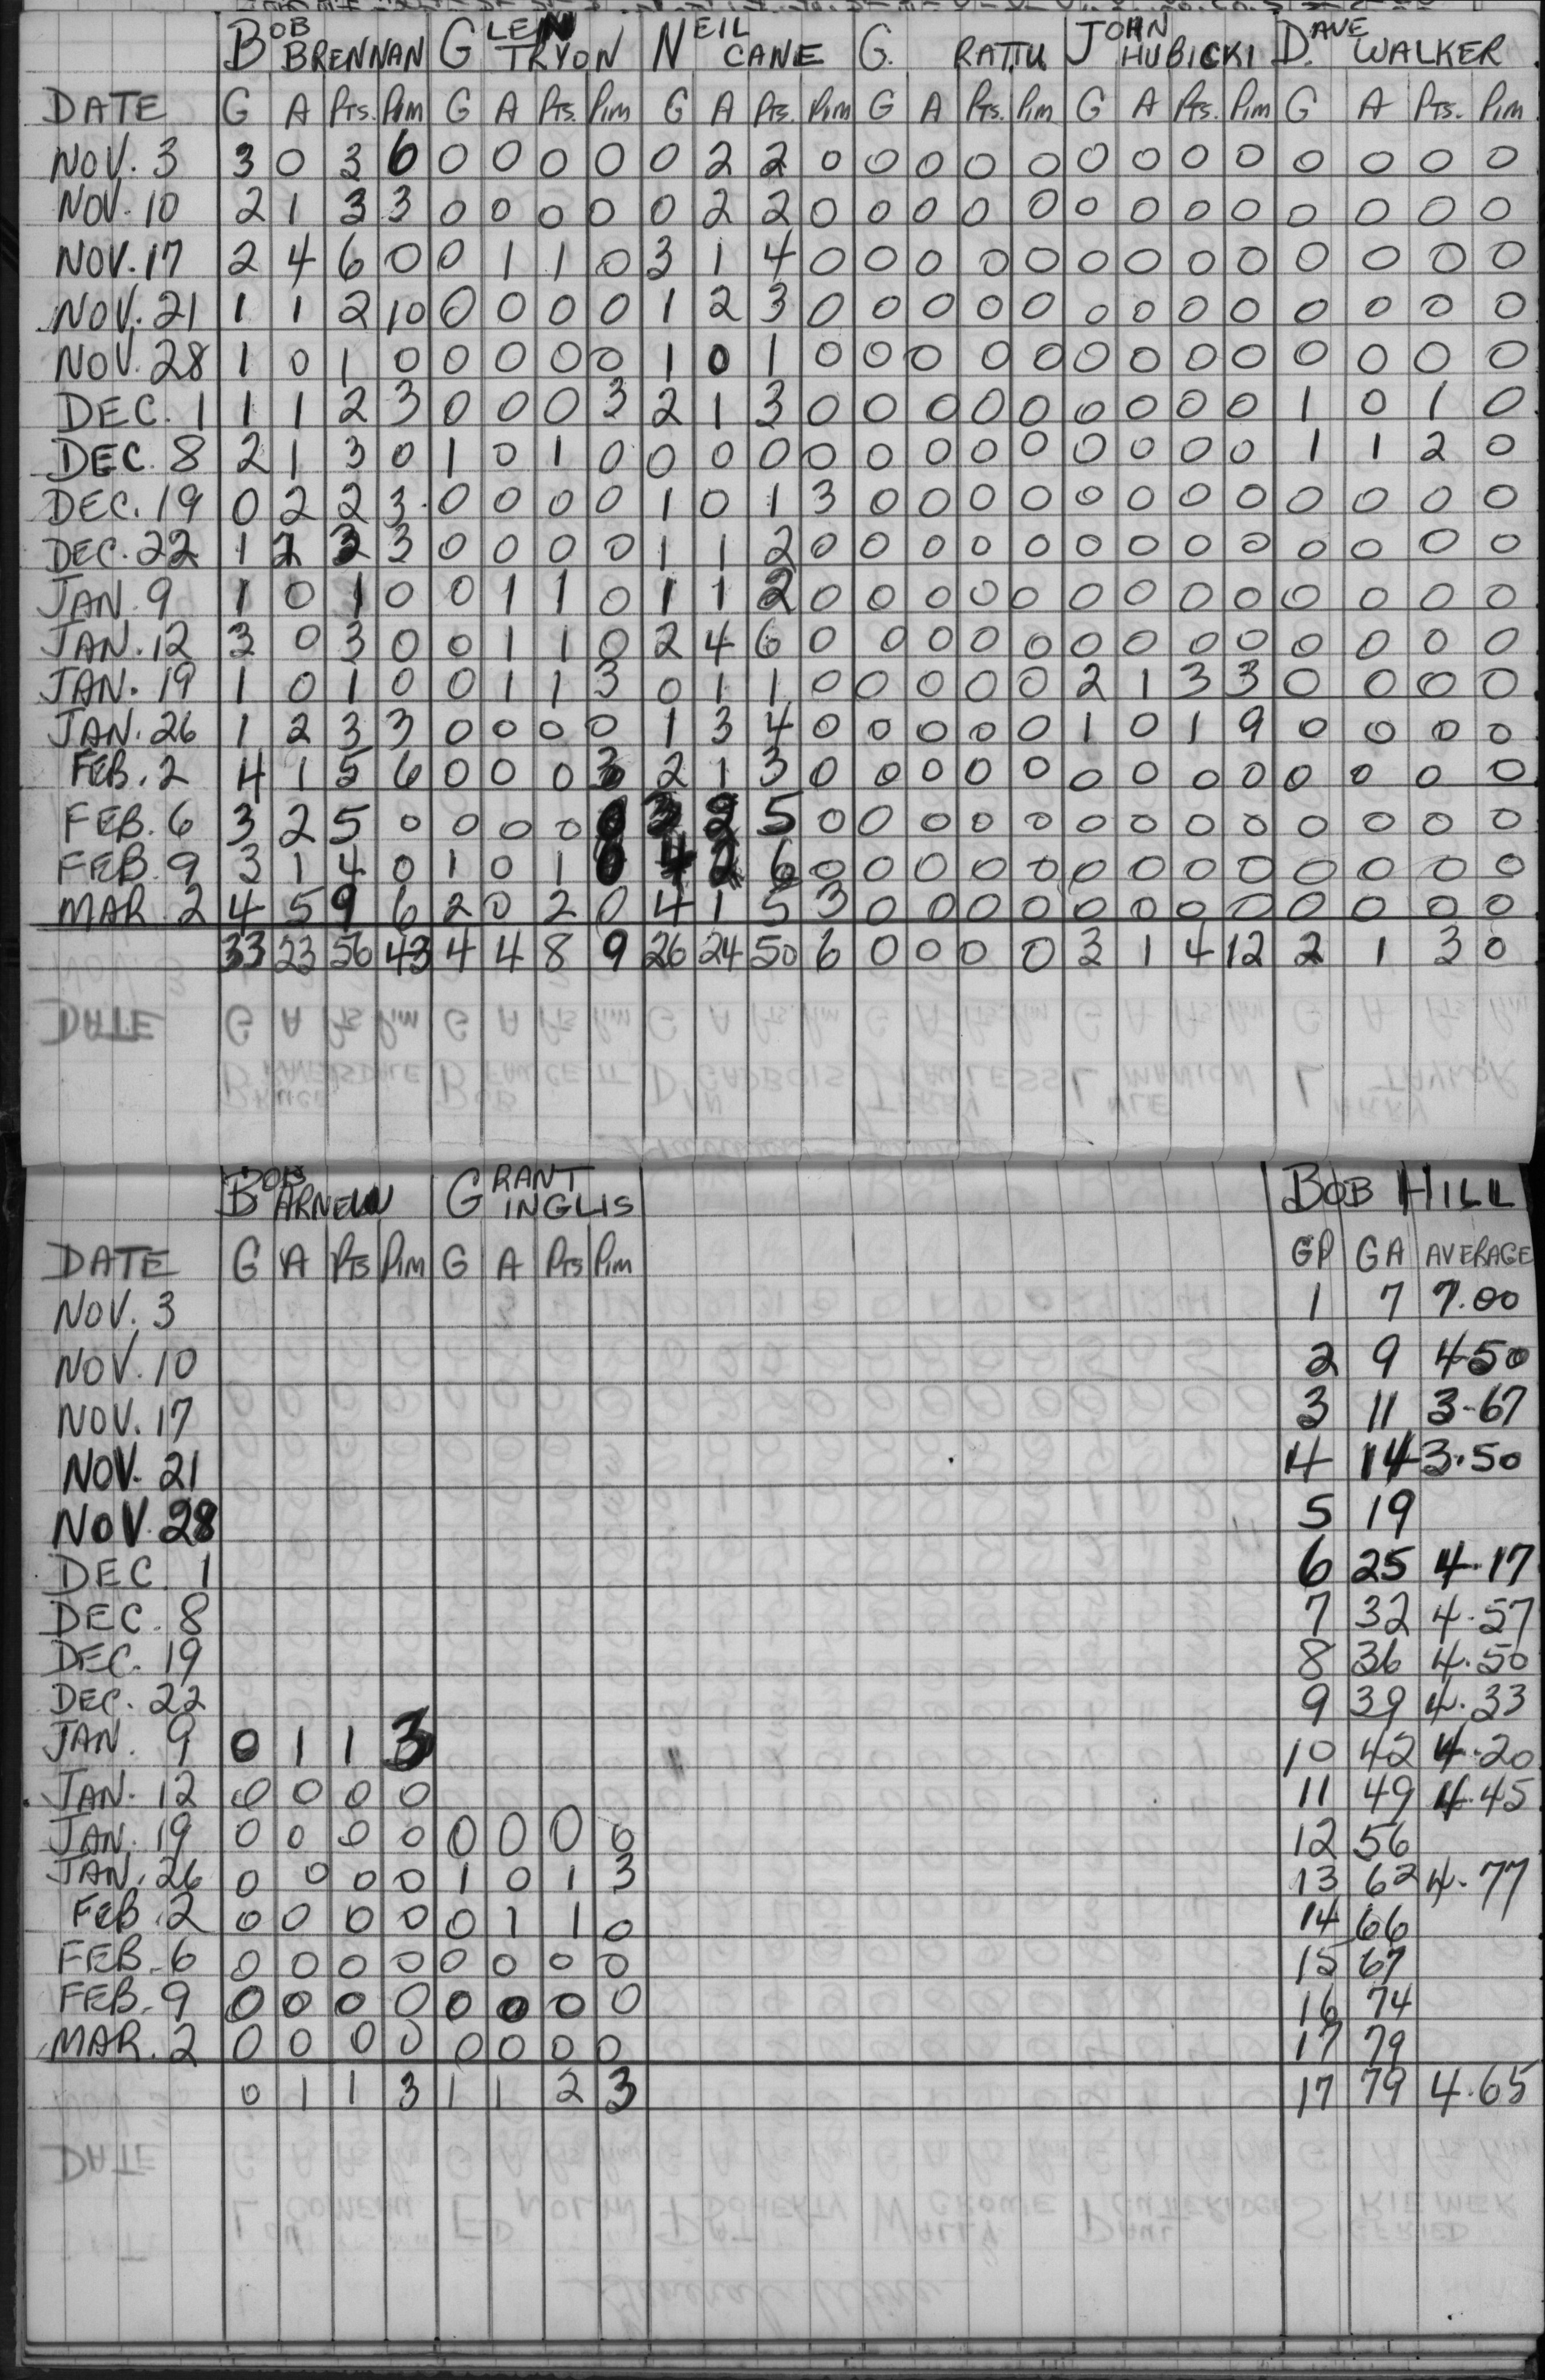 BOB BRENNAN GLENN TRYON NEIL CANE G. RATTU JOHN HUBICKI DAVE WALKER
DATE G A Pts. Pim G A Pts. Pim G A Pts. Pim G A Pts. Pim G A Pts. Pim G A Pts. Pim
NOV. 3 3 0 3 6 0 0 0 0 0 2 2 0 0 0 0 0 0 0 0 0 0 0 0 0
NOV. 10 2 1 3 3 0 0 0 0 0 2 2 0 0 0 0 0 0 0 0 0 0 0 0 0
NOV. 17 2 4 6 0 0 1 1 0 3 1 4 0 0 0 0 0 0 0 0 0 0 0 0 0
NOV. 21 1 1 2 10 0 0 0 0 1 2 3 0 0 0 0 0 0 0 0 0 0 0 0 0
NOV. 28 1 0 1 0 0 0 0 0 1 0 1 0 0 0 0 0 0 0 0 0 0 0 0 0
DEC. 1 1 1 2 3 0 0 0 3 2 1 3 0 0 0 0 0 0 0 0 0 1 0 1 0
DEC. 8 2 1 3 0 1 0 1 0 0 0 0 0 0 0 0 0 0 0 0 0 1 1 2 0
DEC. 19 0 2 2 3 0 0 0 0 1 0 1 3 0 0 0 0 0 0 0 0 0 0 0 0
DEC. 22 1 2 3 3 0 0 0 0 1 1 2 0 0 0 0 0 0 0 0 0 0 0 0 0
JAN. 9 1 0 1 0 0 1 1 0 1 1 2 0 0 0 0 0 0 0 0 0 0 0 0 0
JAN. 12 3 0 3 0 0 1 1 0 2 4 6 0 0 0 0 0 0 0 0 0 0 0 0 0
JAN. 19 1 0 1 0 0 1 1 3 0 1 1 0 0 0 0 0 2 1 3 3 0 0 0 0
JAN. 26 1 2 3 3 0 0 0 0 1 3 4 0 0 0 0 0 1 0 1 9 0 0 0 0
FEB. 2 4 1 5 6 0 0 0 3 2 1 3 0 0 0 0 0 0 0 0 0 0 0 0 0
FEB. 6 3 2 5 0 0 0 0 0 3 2 5 0 0 0 0 0 0 0 0 0 0 0 0 0
FEB. 9 3 1 4 0 1 0 1 0 4 2 6 0 0 0 0 0 0 0 0 0 0 0 0 0
MAR. 2 4 5 9 6 2 0 2 0 4 1 5 3 0 0 0 0 0 0 0 0 0 0 0 0
33 23 56 43 4 4 8 9 26 24 50 6 0 0 0 0 3 1 4 12 2 1 3 0
DATE
BOB ARNEW GRANT INGLIS BOB HILL
DATE G A Pts Pim G A Pts Pim GP GA AVERAGE
NOV. 3 1 7 7.00
NOV. 10 2 9 4.50
NOV. 17 3 11 3.67
NOV. 21 4 14 3.50
NOV. 28 5 19
DEC. 1 6 25 4.17
DEC. 8 7 32 4.57
DEC. 19 8 36 4.50
DEC. 22 9 39 4.33
JAN. 9 0 1 1 3 10 42 4.20
JAN. 12 0 0 0 0 11 49 4.45
JAN. 19 0 0 0 0 0 0 0 0 12 56
JAN. 26 0 0 0 0 1 0 1 3 13 62 4.77
FEB. 2 0 0 0 0 0 1 1 0 14 66
FEB. 6 0 0 0 0 0 0 0 0 15 67
FEB. 9 0 0 0 0 0 0 0 0 16 74
MAR. 2 0 0 0 0 0 0 0 0 17 79
0 1 1 3 1 1 2 3 17 79 4.65
DATE